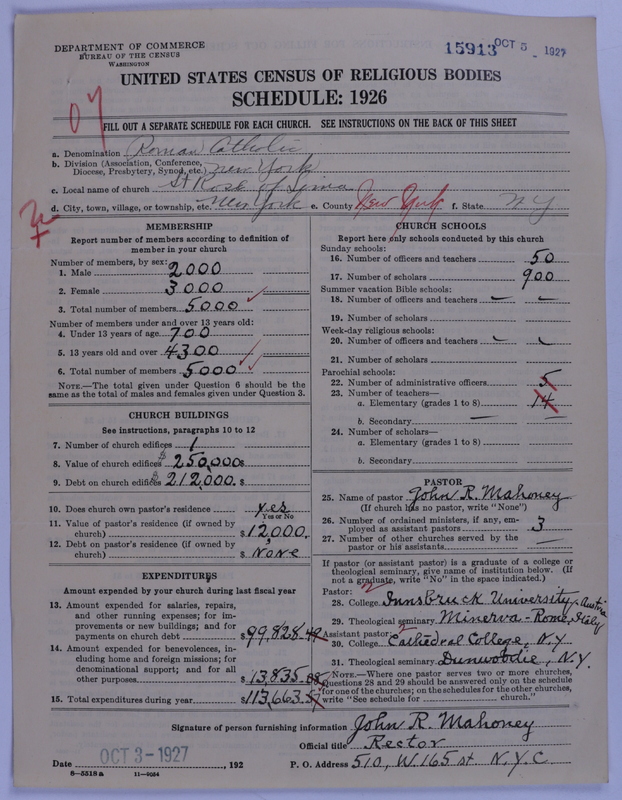 DEPARTMENT OF COMMERCE
BUREAU OF THE CENSUS
WASHINGTON
15913 OCT 5 - 1927
UNITED STATES CENSUS OF RELIGIOUS BODIES
SCHEDULE: 1926
FILL OUT A SEPARATE SCHEDULE FOR EACH CHURCH. SEE INSTRUCTIONS ON THE BACK OF THIS SHEET
a. Denomination Roman Catholic
b. Division (Association, Conference, Diocese, Presbytery, Synod, etc.) New York
c. Local name of church St Rose of Lima
d. City, town, village, or township, etc. New York e. County New York f. State NY
MEMBERSHIP
Report number of members according to definition of
member in your church
Number of members, by sex:
1. Male 2000
2. Female 3000
3. Total number of members 5000
Number of members under and over 13 years old:
4. Under 13 years of age 700
5. 13 years old and over 4300
6. Total number of members 5000
NOTE.—The total given under Question 6 should be the
same as the total of males and females given under Question 3.
CHURCH BUILDINGS
See instructions, paragraphs 10 to 12
7. Number of church edifices 1
8. Value of church edifices $250,000 $
9. Debt on church edifices $212,000. $
10. Does church own pastor's residence yes
Yes or No
11. Value of pastor's residence (if owned by
church) $12,000.
12. Debt on pastor's residence (if owned by
church) $ None
EXPENDITURES
Amount expended by your church during last fiscal year
13. Amount expended for salaries, repairs,
and other running expenses; for im-
provements or new building; and for
payments on church debt $99,828.49
14. Amount expended for benevolences, in-
cluding home and foreign missions; for
denominational support; and for all
other purposes $13,835.08
15. Total expenditures during year $113,663.57
CHURCH SCHOOLS
Report here only schools conducted by this church
Sunday schools:
16. Number of officers and teachers 50
17. Number of scholars 900
Summer vacation Bible schools:
18. Number of officers and teachers — —
19. Number of scholars
Week-day religious schools:
20. Number of officers and teachers
21. Number of scholars
Parochial schools:
22. Number of administrative officers 5
23. Number of teachers—
a. Elementary (grades 1 to 8) 14
b. Secondary — —
24. Number of scholars—
a. Elementary (grades 1 to 8)
b. Secondary
PASTOR
25. Name of pastor John R. Mahoney
(If church has no pastor, write "None")
26. Number of ordained ministers, if any, em-
ployed as assistant pastors 3
27. Number of other churches served by the
pastor or his assistants —
If pastor (or assistant pastor) is a graduate of a college or
theological seminary, give name of institution below. (If
not a graduate, write "No" in the space indicated.)
Pastor:
28. College Innsbruck University, Austria
29. Theological seminary Minerva - Rome, Italy
Assistant pastor:
30. College Cathedral College, N.Y.
31. Theological seminary Dunwoodie, N.Y.
NOTE.—Where one pastor serves two or more churches,
Questions 28 and 29 should be answered only on the schedule
for one of the churches; on the schedules for the other churches,
write "See schedule for church."
Signature of person furnishing information John R. Mahoney
Official title Rector
Date OCT 3-1927, 192 P. O. Address 510, W. 165 st N.Y.C
8-5518a 11-9054